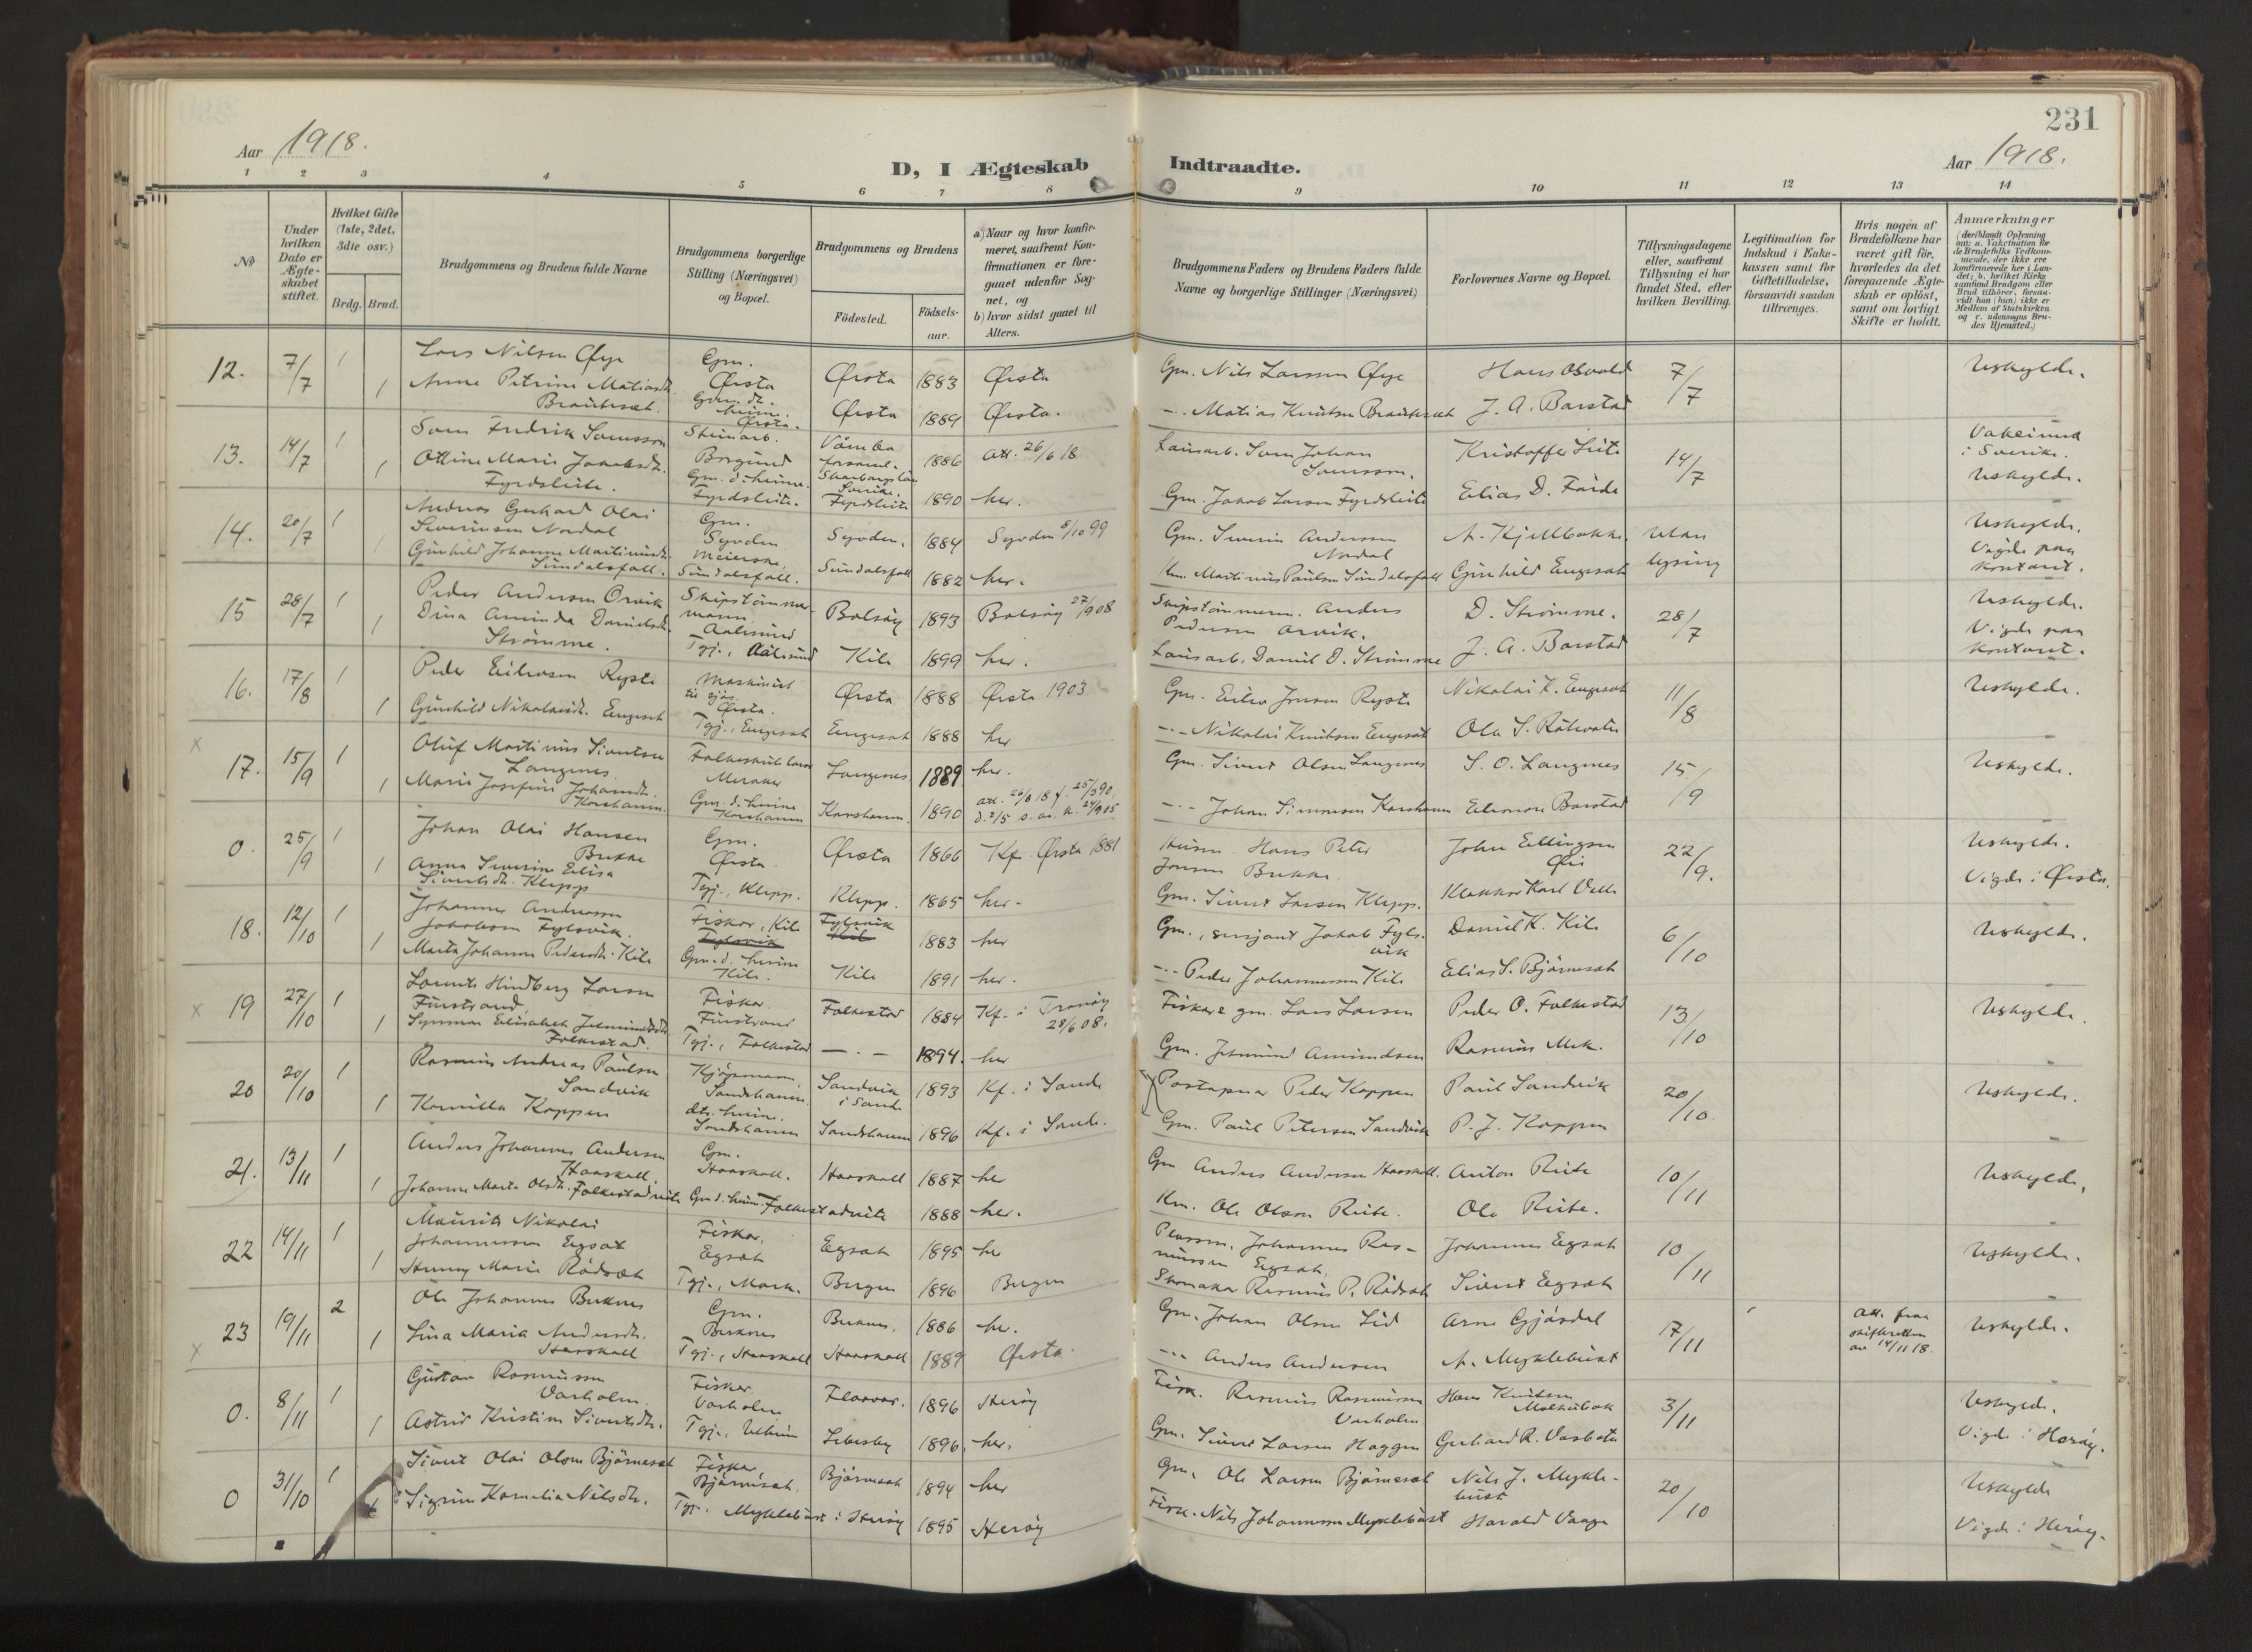 231
Aar 1918.
D, I Ægteskab Indtraadte.
Aar 1918.
1 2 3 4 5 6 7 8 9 10 11 12 13 14
No
Under hvilken Dato er Ægteskabet stiftet.
Hvilket Gifte (1ste, 2det, 3die osv.)
Brdg. Brud.
Brudgommens og Brudens fulde Navne
Brudgommens borgerlige Stilling (Næringsvei) og Bopæl.
Brudgommens og Brudens
Födested.
Födsels-aar.
a) Naar og hvor konfirmeret, saafremt Konfirmationen er foregaaet udenfor Sognet, og
b) hvor sidst gaaet til Alters.
Brudgommens Faders og Brudens Faders fulde Navne og borgerlige Stillinger (Næringsvei)
Forlovernes Navne og Bopæl.
Tillysningsdagene eller, saafremt Tillysning ei har fundet Sted, efter hvilken Bevilling.
Legitimation for Indskud i Enkekassen samt for Giftetilladelse, forsaavidt saadan tiltrænges.
Hvis nogen af Brudefolkene har været gift før, hvorledes da det foregaaende Ægteskab er oplöst, samt om lovligt Skifte er holdt.
Anmærkninger
(deriblandt Oplysning om: a. Vakcination for de Brudefolks Vedkommende, der ikke ere konfirmerede her i Landet; b. hvilket Kirkesamfund Brudgom eller Brud tilhörer, forsaavidt han (hun) ikke er Medlem af Statskirken og c. udensogns Brudes Hjemsted.)
12. 7/7 1 Lars Nilsen Øye Gm. Ørsta Ørsta 1883 Ørsta Gm. Nils Larssen Øye Hans Osvold 7/7 Uskylde.
1 Anne Petrine Matiasdt. Gm. dt. heime. Ørsta. Ørsta 1889 Ørsta. -"- Matias Knutsen J. A. Barstad
13. 14/7 1 Sven Fredrik Svensson Steinarb. Borgund 1886 att. 26/6 18 Lausarb. Sven Johan Svensson. Kristoffer Leite 14/7 Vakcinerd i Sverike.
1 Ottine Marie Jakobsdt. Fyrdsleite. Gm. d. heime. Fyrdsleite. Fyrdsleite 1890 her. Gm. Jakob Larsen Fyrdsleite Elias D. Førde Uskylde.
14. 20/7 1 Andreas Gerhard Olai Severinsen Nordal Gm. Syvden Syvden. 1884 Syvden 8/10 99 Gm. Severin Andersen Nordal A. Kjellbakke. utan lysing Uskylde.
1 Gunhild Johanne Martinusdt. Sundalsfoll. Meierske, Sundalsfoll. Sundalsfoll 1882 her. Martinus Paulsen Sundalsfoll Gunhild Engeset Vigde paa kontoret.
15 28/7 1 Peder Andersen Orvik Skipstömmermann Aalesund Bolsöy 1893 Bolsöy 27/9 08 Skipstömmerm. Anders Pedersen Orvik. D. Strömme. 28/7 Uskylde.
1 Dina Aminda Danielsdt. Strömme. Tgj., Aalesund Kile 1899 her. Lausarb. Daniel D. Strömme J. A. Barstad Vigde paa kontoret.
16. 17/8 1 Peder Eilevsen Ryste Maskinist til sjös. Ørsta. Ørsta 1888 Ørsta 1903 Gm. Eilev Jensen Ryste Nikolai K. Engeset 11/8 Uskylde.
1 Gunhild Nikolaisdt. Engeset Tgj., Engeset Engeset 1888 her -"- Nikolai Knutsen Engeset Ola S. Rötevatn
x 17. 15/9 1 Oluf Martinus Sivertsen Langenes Folkeskulelærar Meraker Langenes 1889 her. Gm. Sivert Olsen Langenes S. O. Langenes 15/9 Uskylde.
1 Marie Josefine Johansdt. Korshamn Gm. d. heime Korshamn Korshamn. 1890 -"- Johan Simonsen Korshamn Elenore Barstad
0. 25/9 1 Johan Olai Hansen Brekke Gm. Ørsta Ørsta 1866 Kf. Ørsta 1881 Husm. Hans Peter Jensen Brekke John Ellingsen 22/9. Uskylde.
1 Anna Severine Elisa Sivertsdt. Klepp Tgj., Klepp. Klepp. 1865 her. Gm. Sivert Larsen Klepp. Karl Velle Vigde i Ørsta.
18. 12/10 1 Johannes Andreassen Jakobsen Fylsvik. Fiskar, Kile Fylsvik Fylsvik Kile 1883 her Gm., sersjant Jakob Fylsvik Daniel K. Kile 6/10 Uskylde.
1 Marta Johanne Pedersdt. Kile Gm. d. heime Kile. Kile 1891 her. -"- Peder Johannessen Kile Elias S. Björneset
x 19 27/10 1 Laurits Hindberg Larsen Finstrand Fiskar Finstrand Folkestad 1884 Kf. i Tranöy 28/6 08. Fiskar & gm. Lars Larsen Peder O. Folkestad 13/10 Uskylde.
1 Synneva Elisabet Jetmundsdt. Folkestad. Tgj., Folkestad -"- 1894. her Gm. Jetmund Amundsen Rasmus Mek.
20 20/10 1 Rasmus Andreas Paulsen Sandvik Kjöpmann, Sandshamn. Sandvik i Sande 1893 Kf. i Sande Postopnar Peder Koppen Paul Sandvik 20/10. Uskylde.
1 Kamilla Koppen dtr. heime. Sandshamn Sandshamn 1896 Kf. i Sande. Gm. Paul Petersen Sandvik P. J. Koppen
21. 13/11 1 Anders Johannes Andersen Haaskoll. Gm. Haaskoll. Haaskoll 1887 her Gm Anders Andersen Haaskoll. Anton Reite 10/11 Uskylde.
1 Johanne Marta Olsdt. Folkestadreite Gm d. heim. Folkestadreite 1888 her. Ole Olsen Reite. Ole Reite.
22 14/11 1 Maurits Nikolai Johannessen Egset Fiskar, Egset Egset 1895 her Plassm. Johannes Rasmussen Egset. Johannes Egset 10/11 Uskylde.
1 Marie Rödset Tgj., Bergen 1896 Bergen Skomakar Rasmus P. Rödset Sivert Egset
23 19/11 2 Ole Johannes Bueknes Gm. 1886 her. Gm. Johan Olsen Lid Arne Gjördal 17/11 Att. fraa skifteretten av 14/11 18. Uskylde.
x 1 Lina Maria Andersdt. Haaskoll Tgj., Haaskoll Haaskoll 1889 Ørsta -"- Anders Andersen A. Myklebust
0. 8/11 1 Gustav Rasmussen Voxholm. Fiskar 1896 Heröy Fisk. Rasmus Rasmussen Hans Knutsen 3/11 Uskylde.
1 Astrid Kristine Sivertsdt. Tgj., 1896, her. Gm. Sivert Larsen Gerhard R. Vigde i Heröy.
0 31/10 1 Sivert Olai Olsen Björneset Fiskar Björneset. Björneset 1894 her Gm. Ole Larsen Björneset Nils J. Myklebust 20/10 Uskylde
1 Sigrun Kornelia Nilsdt. Tgj. Myklebust i Heröy 1895 Heröy Fisk. Nils Johannessen Myklebust Harald Vaage Vigde i Heröy.